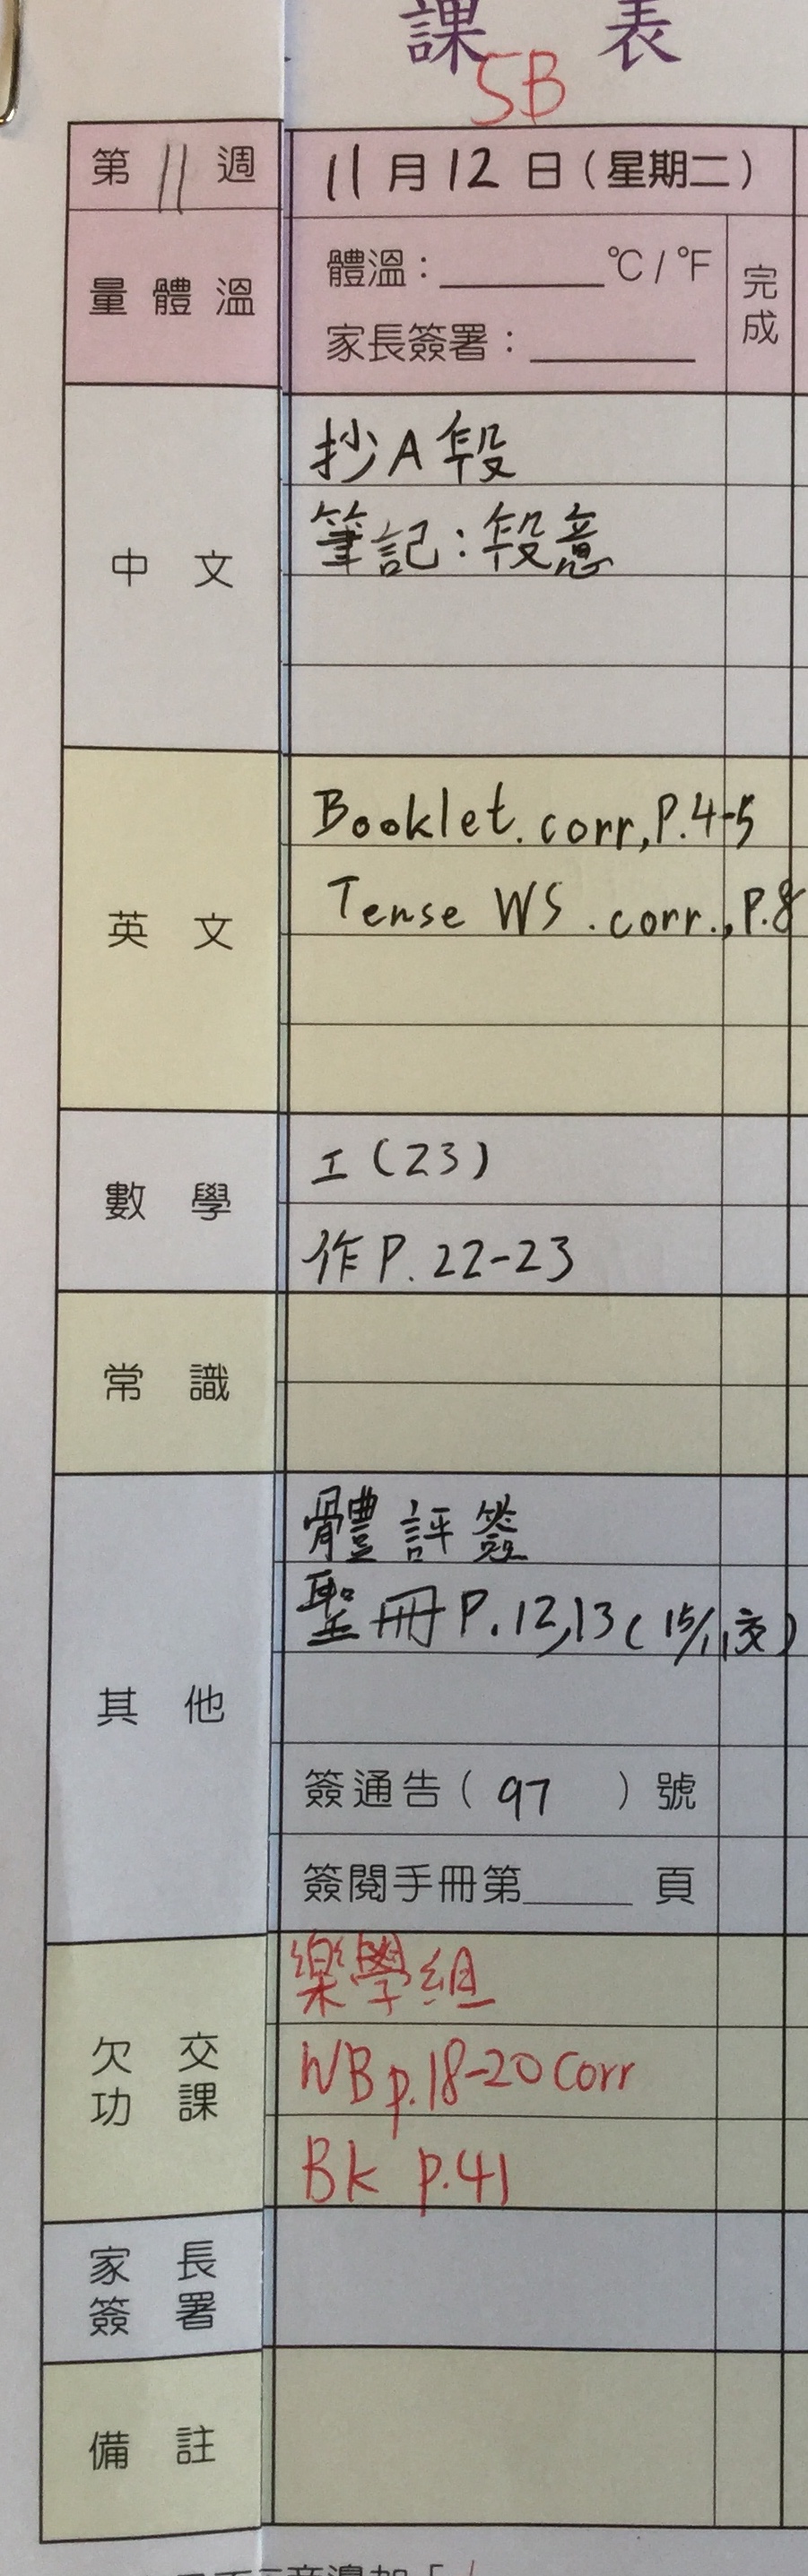 課 表
5B
第 11 週
11月12日(星期二)
量 體 溫
體溫:______°C/°F
家長簽署:______
完成
中 文
抄A段
筆記:段意
英 文
Booklet.corr,P.4-5
Tense WS.corr.,P.8
數 學
工(23)
作P.22-23
常 識
其 他
體評簽
聖冊P.12,13(15/11交)
簽通告(97 )號
簽閱手冊第____頁
欠 交
功 課
樂學組
WB p.18-20 Corr
Bk p.41
家 長
簽 署
備 註